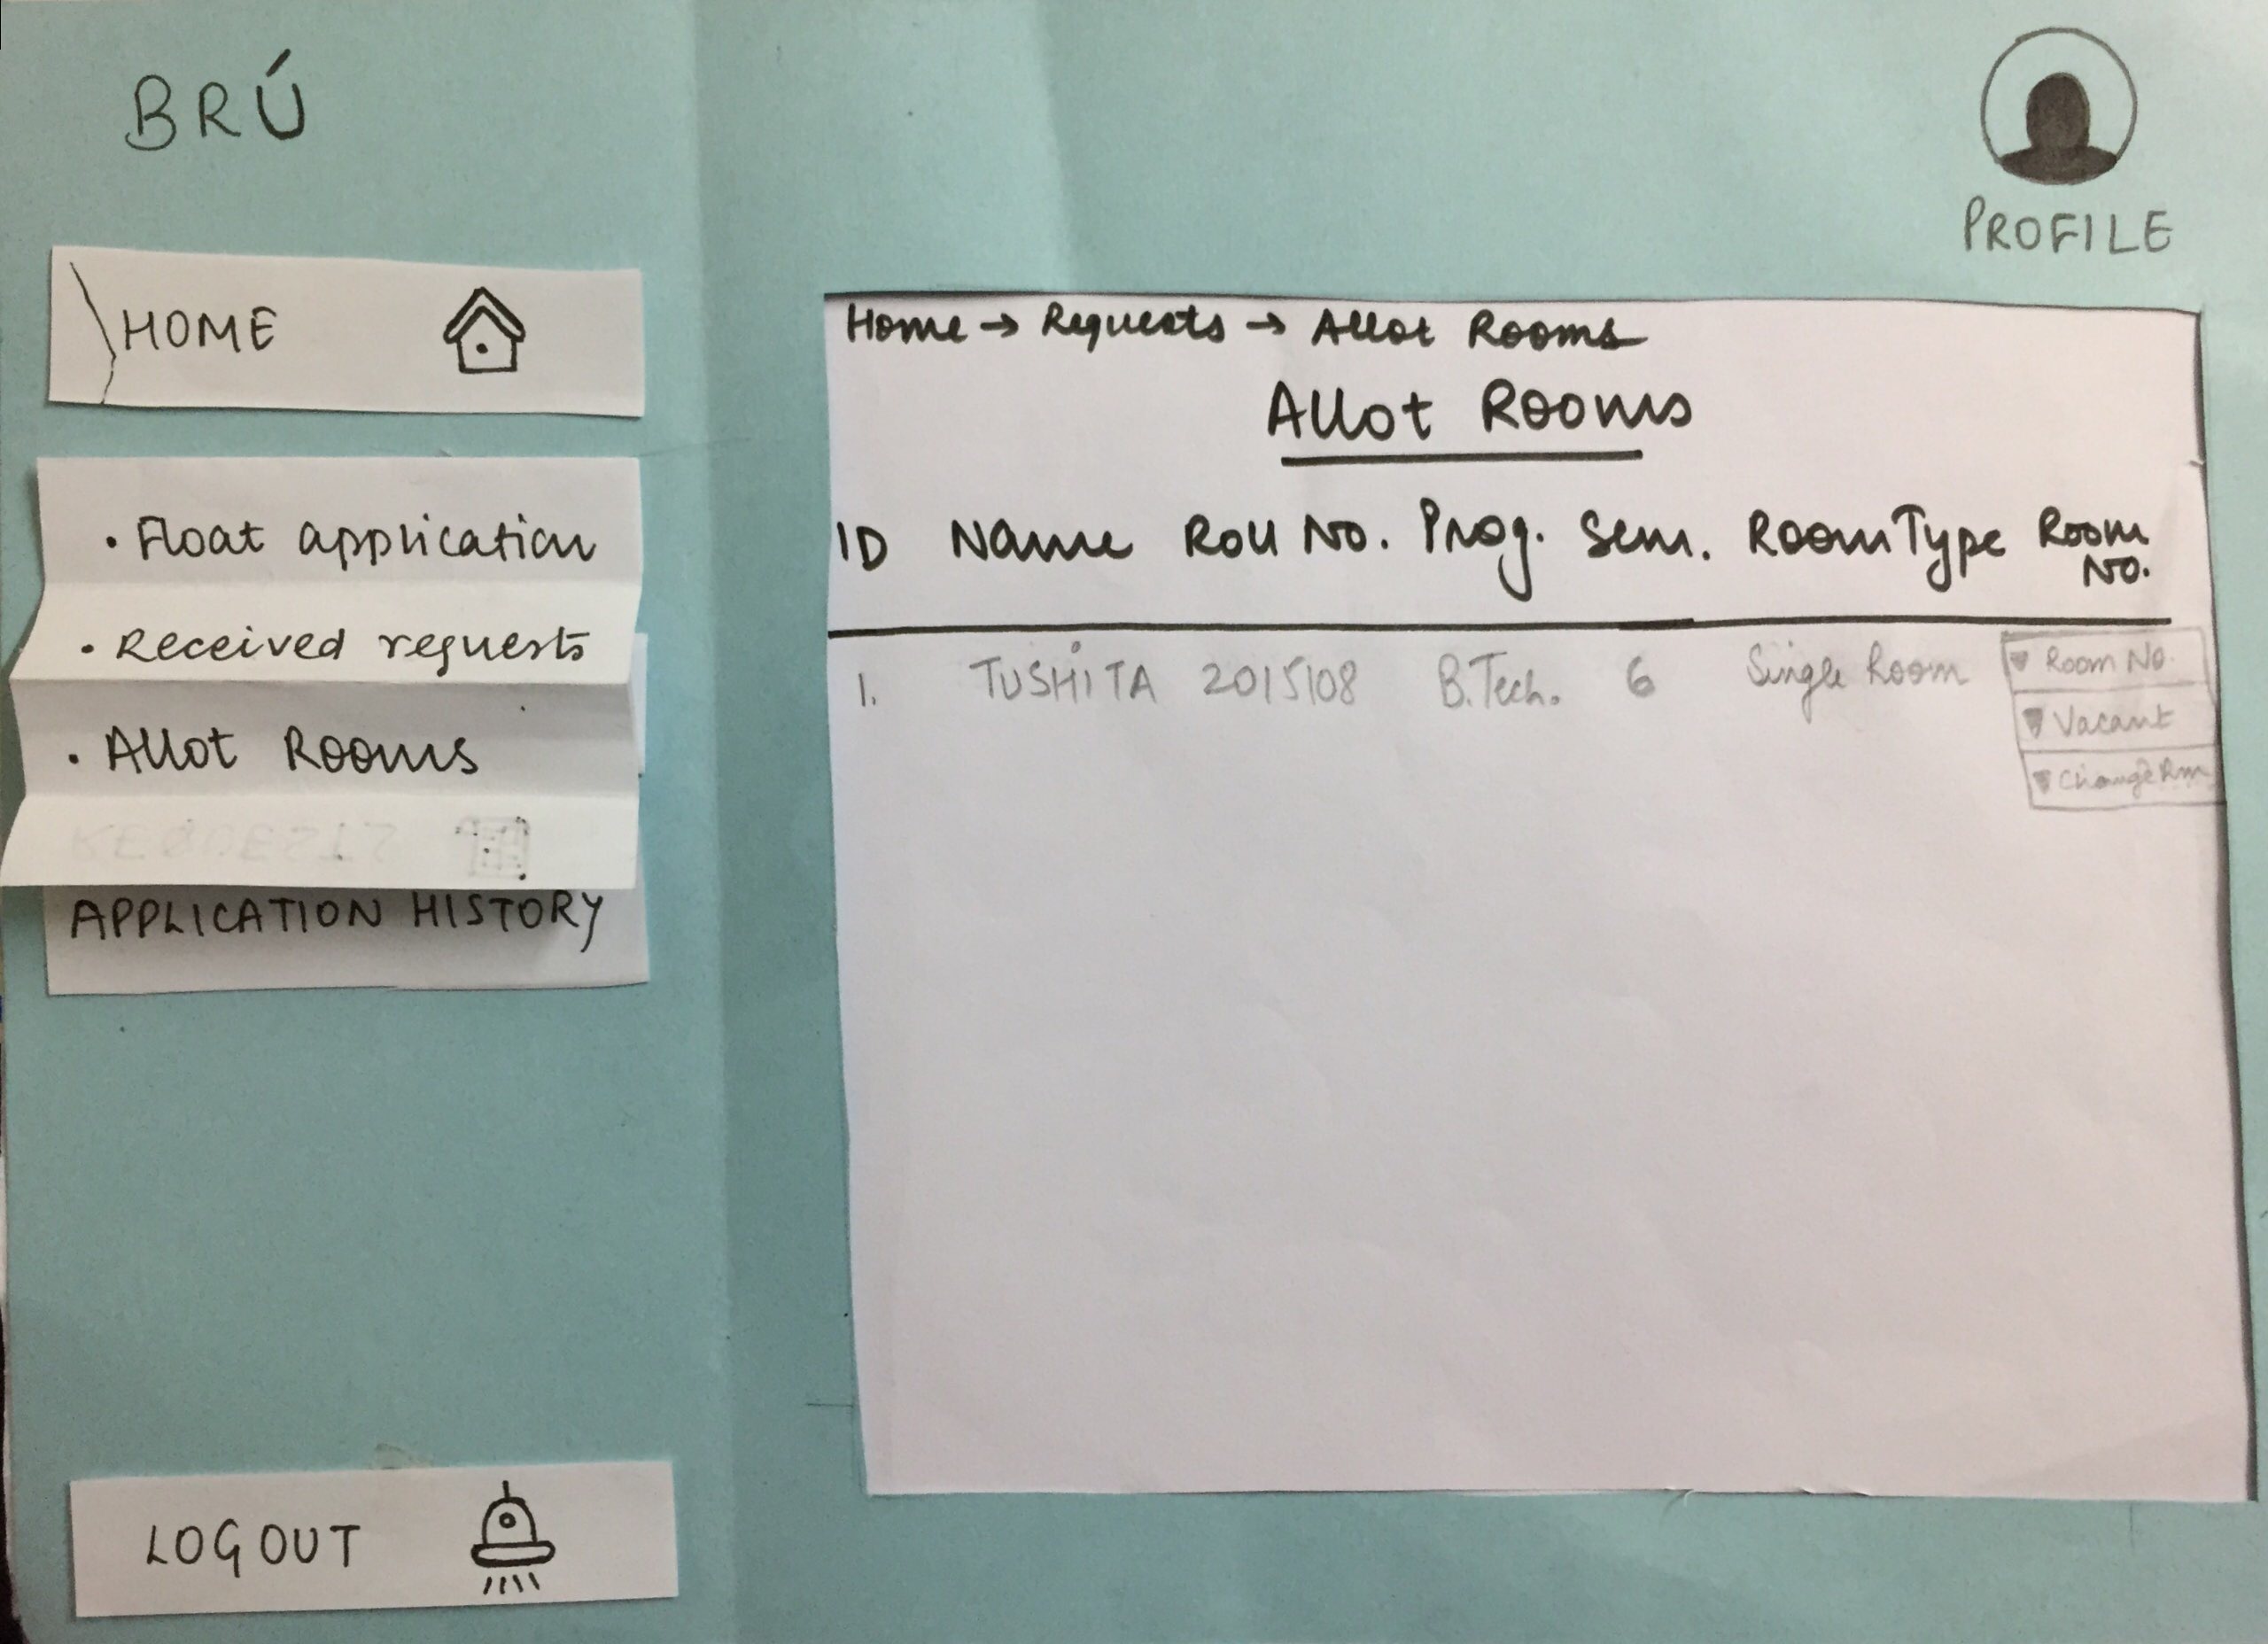 BRÚ
PROFILE
HOME
• Float application
• Received requests
• Allot Rooms
APPLICATION HISTORY
LOGOUT
Home → Requests → Allot Rooms
Allot Rooms
ID Name Roll No. Prog. Sem. Room Type Room No.
1. TUSHITA 2015108 B.Tech. 6 Single Room
▼ Room No.
▼ Vacant
▼ Change Rm